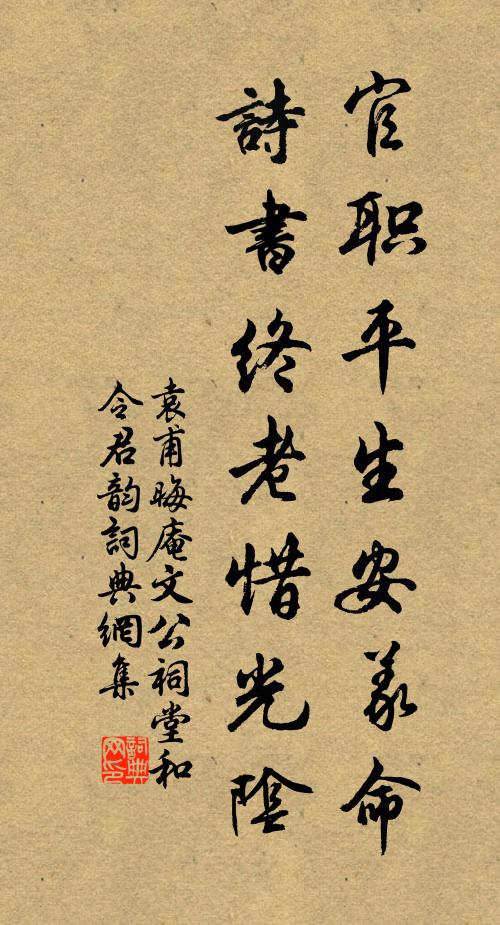 官职平生安义命
詩書终老惜光陰
袁甫晦庵文公祠堂和
令君韵詞典網集
詞典网印